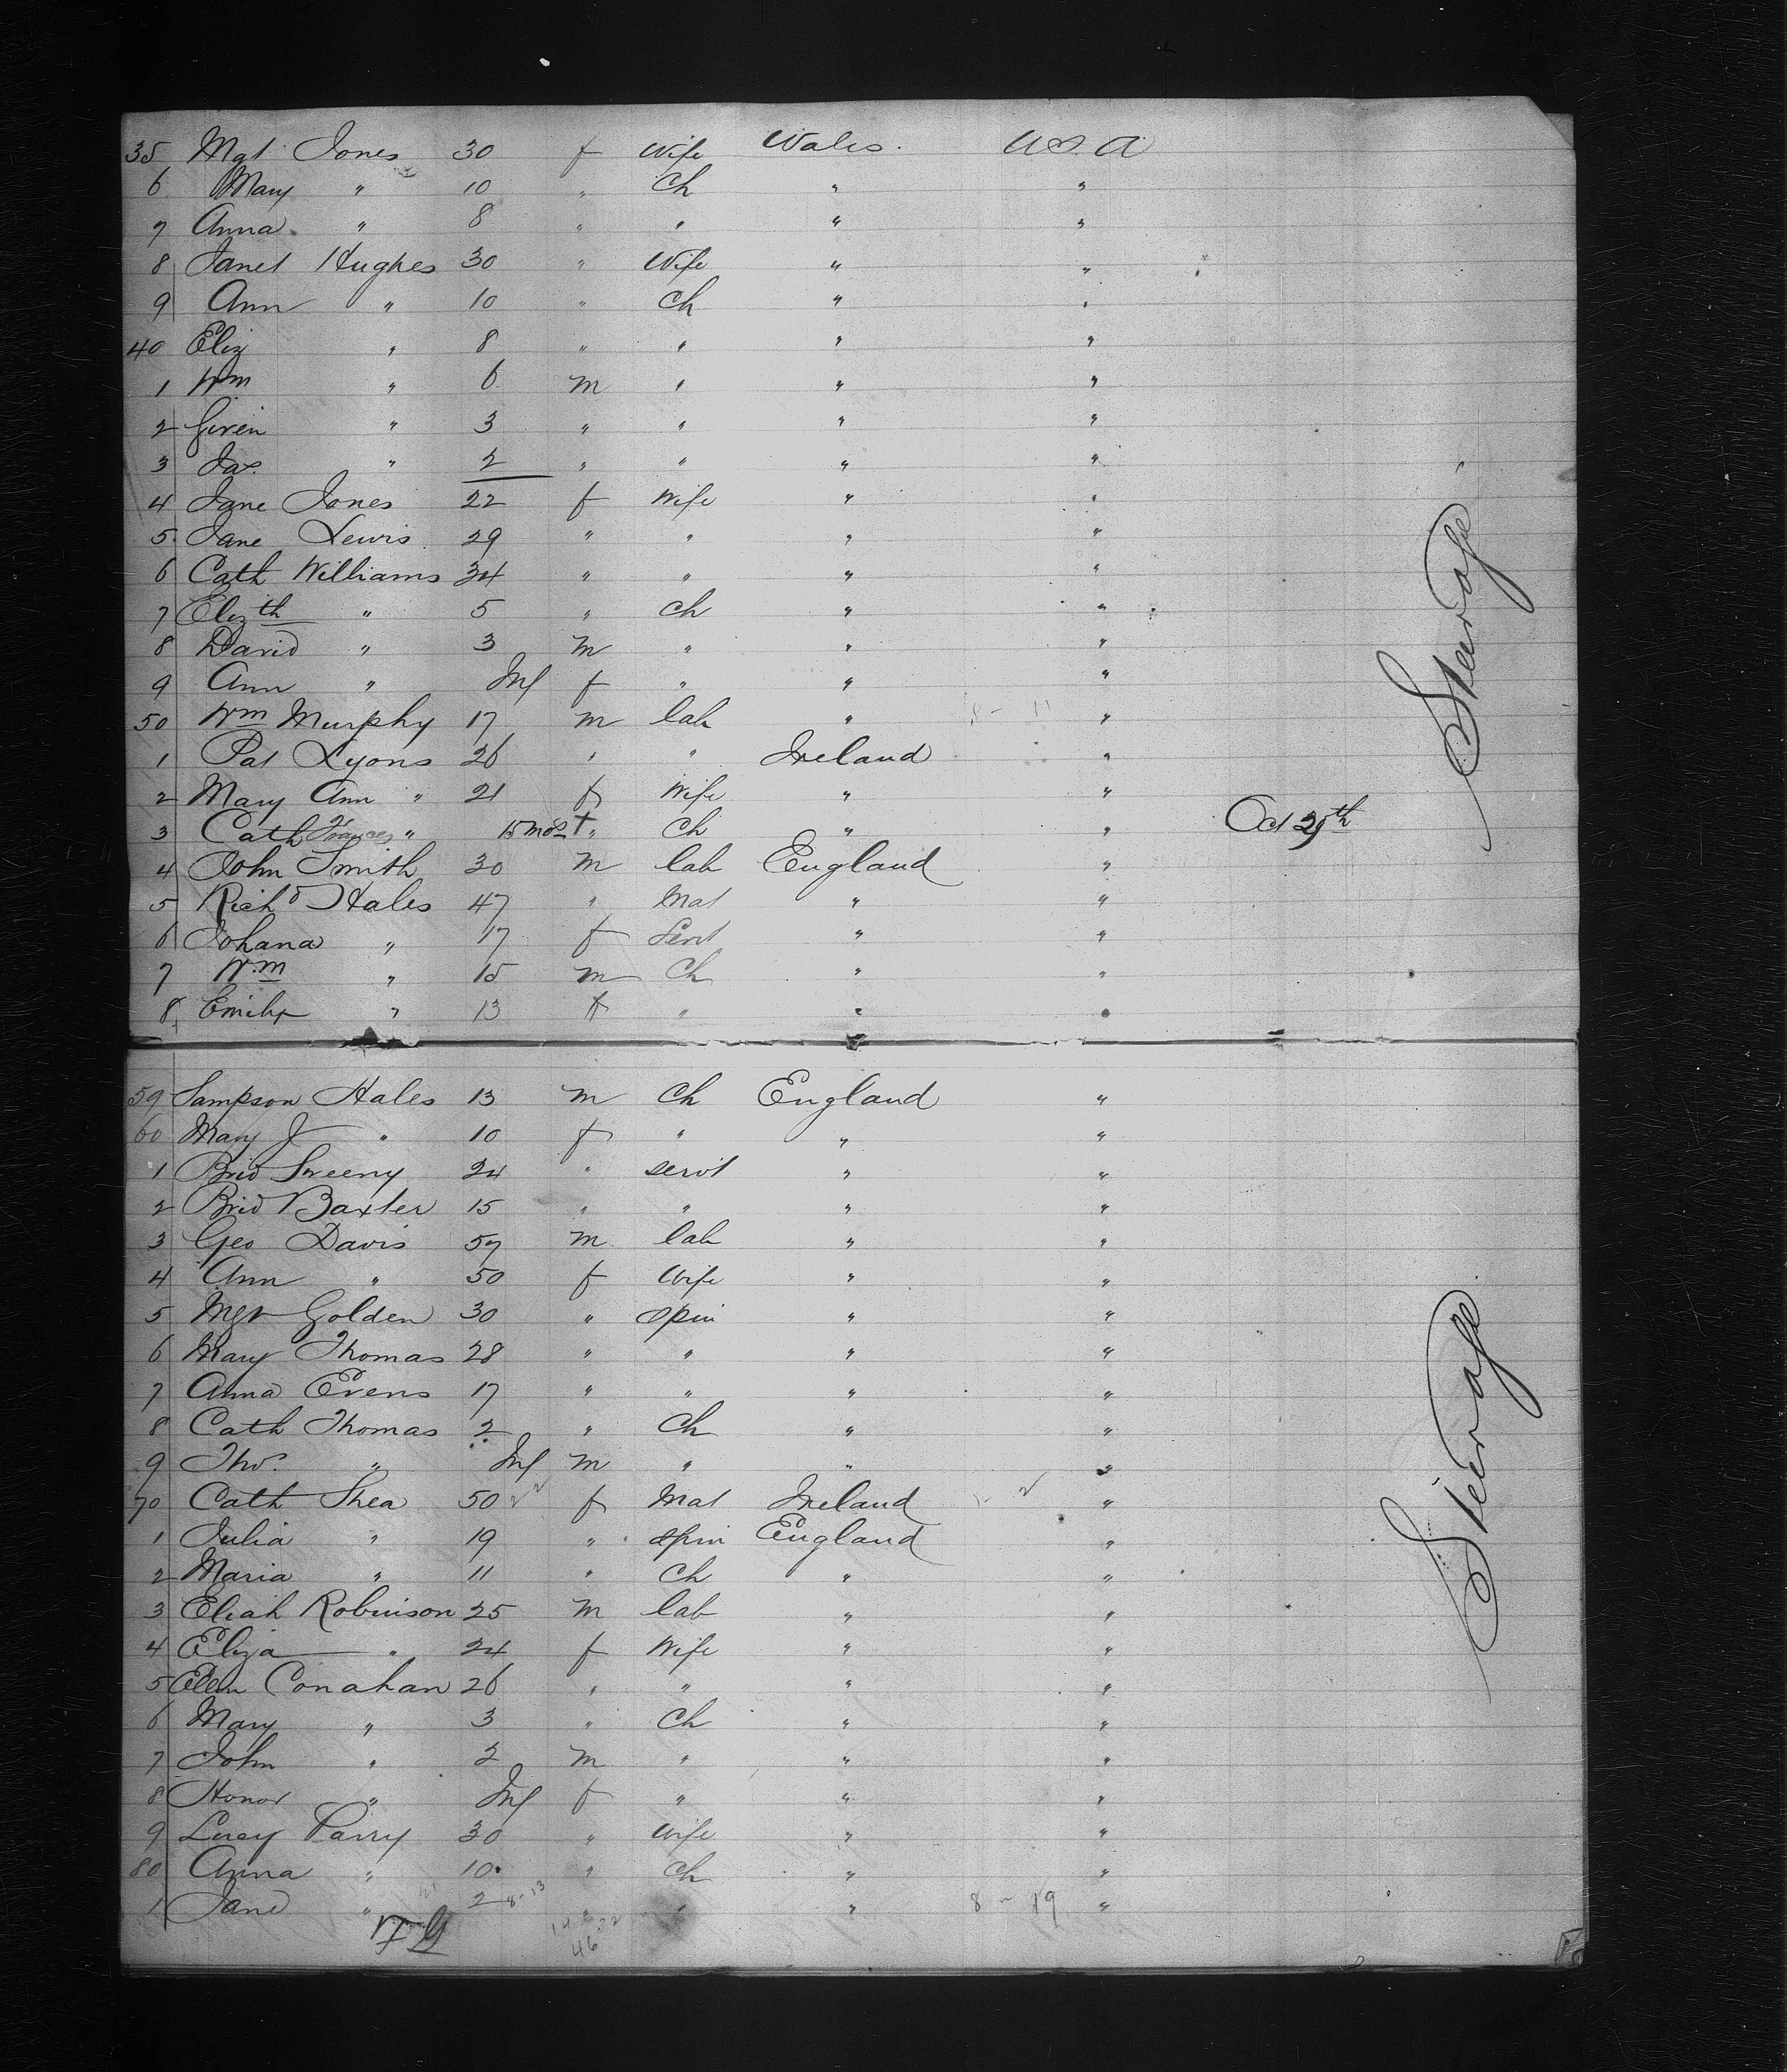 35 Mgt Jones 30 f Wife Wales. U.S.A
6 Mary " 10 " Ch " "
7 Anna " 8 " " " "
8 Janet Hughes 30 " Wife " "
9 Ann " 10 " Ch " "
40 Eliz " 8 " " " "
1 Wm " 6 m " " "
2 " 3 " " " "
3 Jas. " 2 " " " "
4 Jane Jones 22 f Wife " "
5 Jane Lewis 29 " " " "
6 Cath Williams 34 " " " "
7 Elizth " 5 " Ch " "
8 David " 3 m " " "
9 Ann " Inf f " " "
50 Wm Murphy 17 m lab " "
1 Pat Lyons 26 " " Ireland "
2 Mary Ann " 21 f Wife " "
3 Cath Frances " 15 mos + " Ch " " Oct 29th
4 John Smith 30 m lab England "
5 Richd Hales 47 " Mat " "
6 Johana " 17 f Servt " "
7 Wm " 15 m Ch " "
8 Emily " 13 f " " "
Steerage
59 Sampson Hales 13 m Ch England "
60 Mary J " 10 f " " "
1 Brid Sweeny 24 " servt " "
2 Brid Baxter 15 " " " "
3 Geo Davis 57 m lab " "
4 Ann " 50 f Wife " "
5 Mgt Golden 30 " spin " "
6 Mary Thomas 28 " " " "
7 Anna Evens 17 " " " "
8 Cath Thomas 2 " Ch " "
9 Thos. " Inf m " " "
70 Cath Shea 50 f Mat Ireland "
1 Julia " 19 " spin England "
2 Maria " 11 " Ch " "
3 Eliah Robinson 25 m lab " "
4 Eliza " 24 f Wife " "
5 Ellen Conahan 26 " " " "
6 Mary " 3 " Ch " "
7 John " 2 m " " "
8 Honor " Inf f " " "
9 Lucy Parry 30 " Wife " "
80 Anna " 10 " Ch " "
1 Jane " 2 8-13 " " " 8 - 19 "
46
Steerage